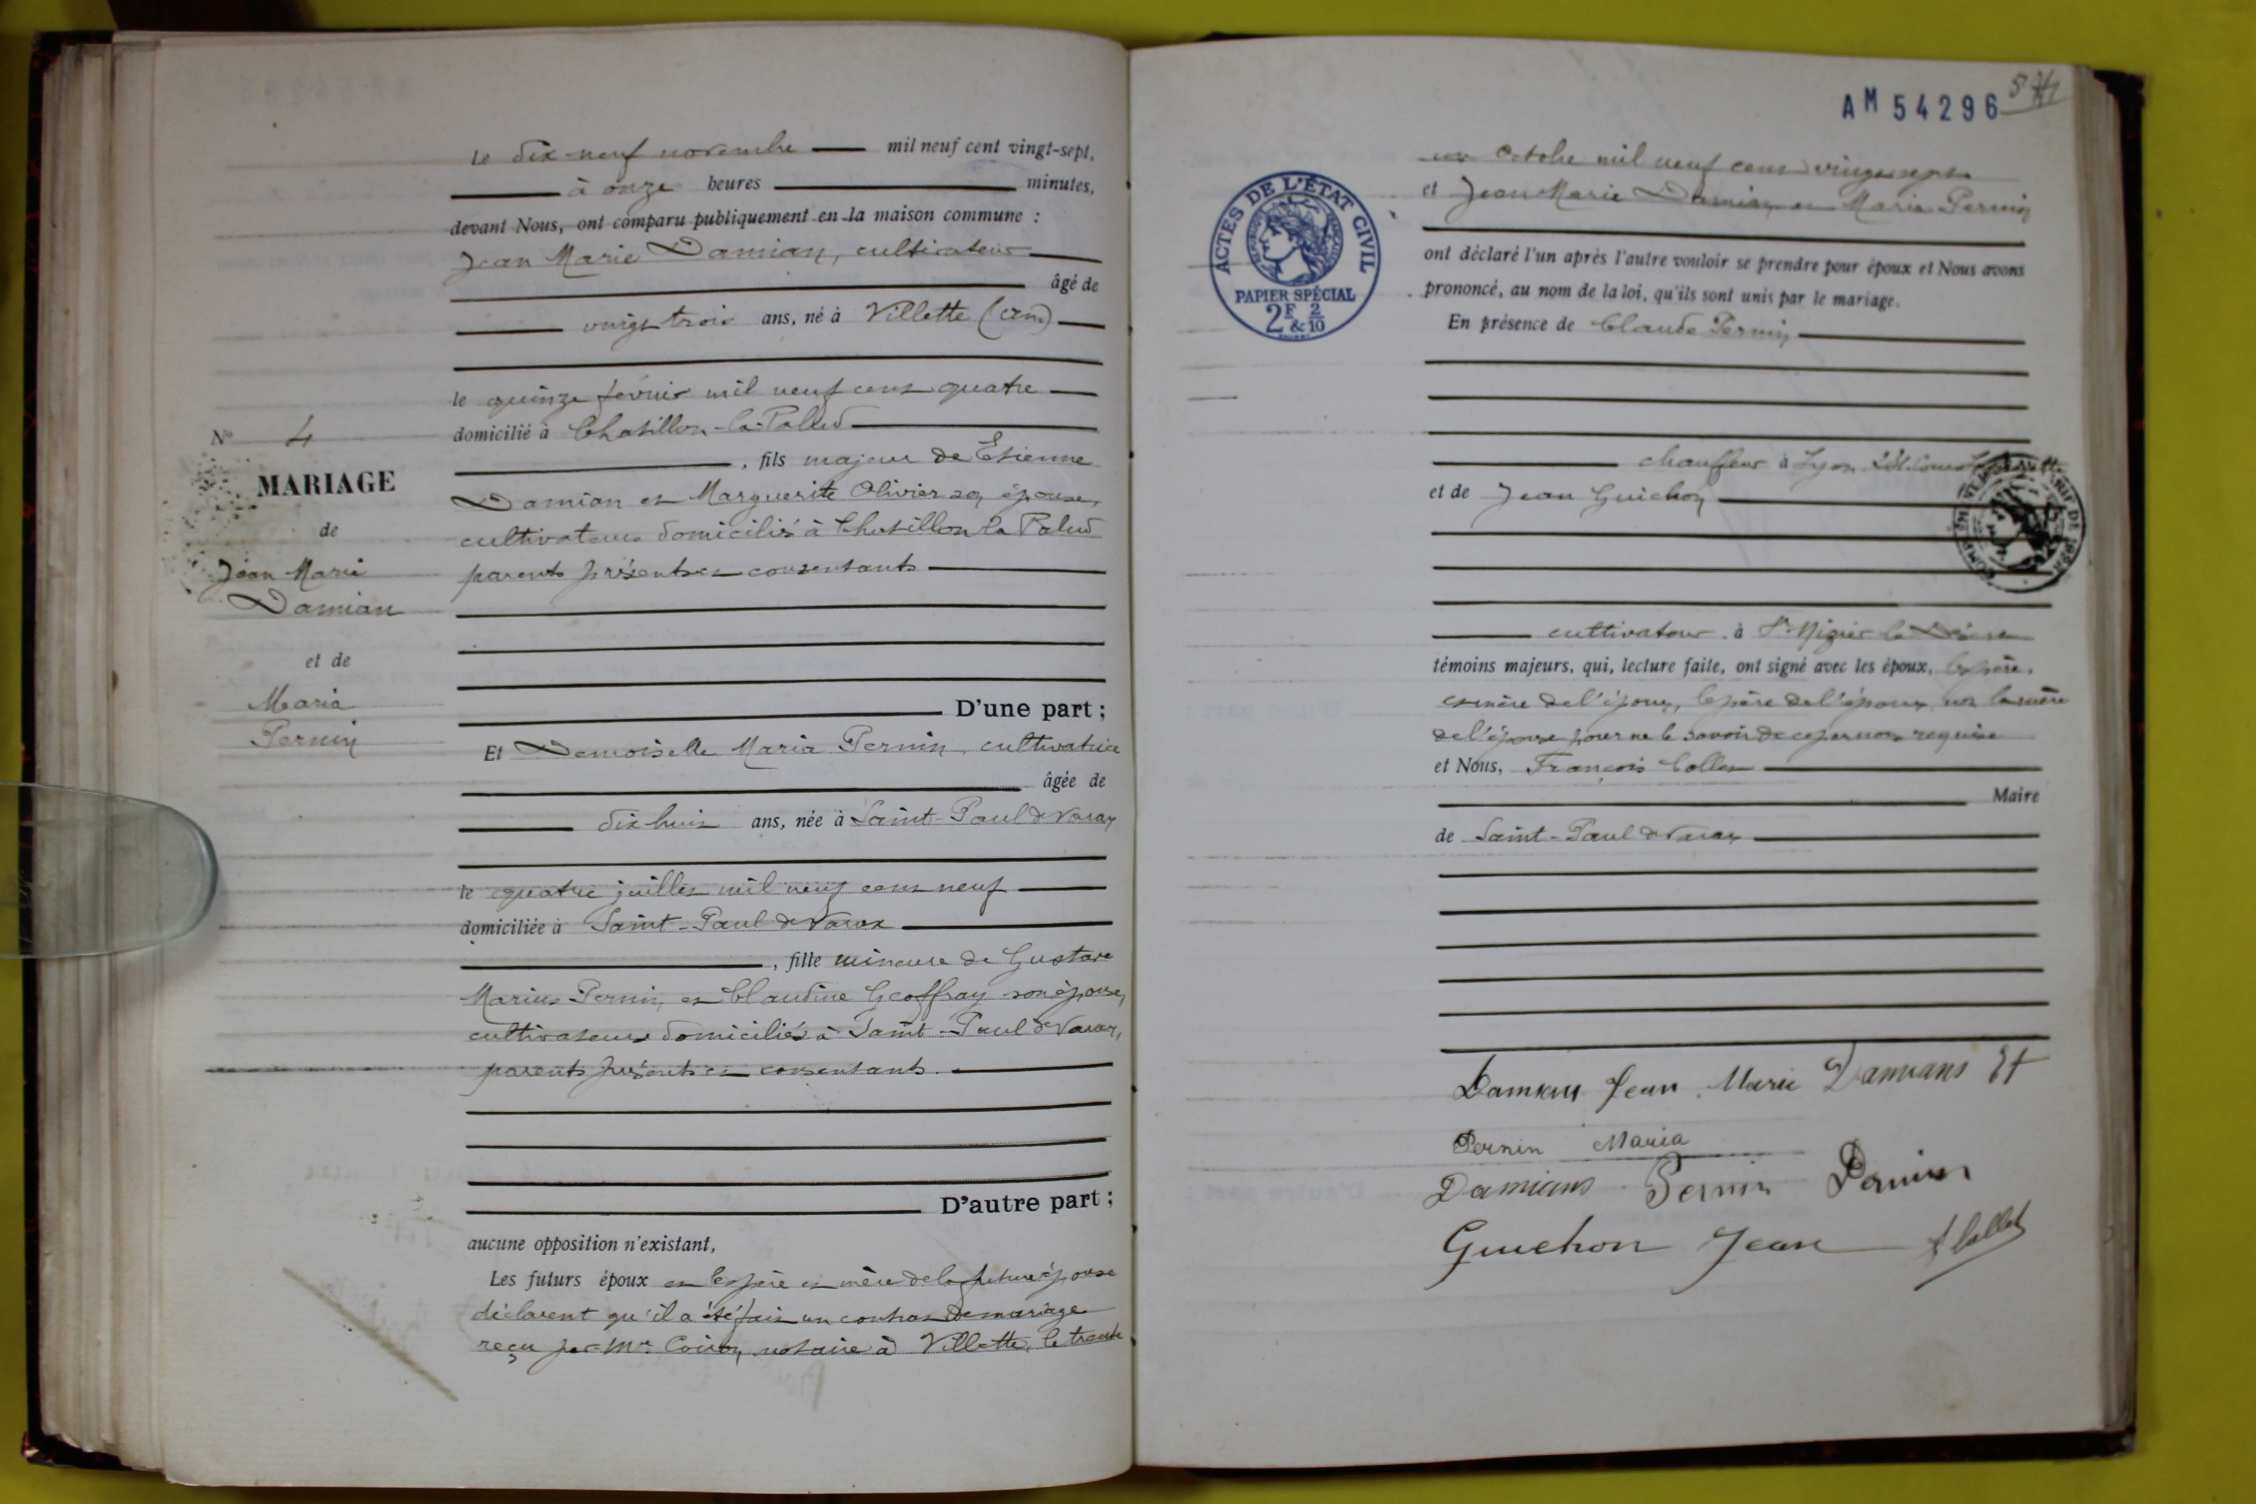 Le dix-neuf novembre mil neuf cent vingt-sept,
à onze heures minutes,
devant Nous, ont comparu publiquement en la maison commune :
Jean Marie Damian, cultivateur
âgé de
vingt trois ans, né à Villette (Ain)
le quinze février mil neuf cent quatre
domicilié à Chatillon-la-Palud
, fils majeur de Etienne
Damian et Marguerite Olivier son épouse,
cultivateurs domiciliés à Chatillon la Palud
parents présents et consentants
D'une part ;
Et Demoiselle Maria Pernin, cultivatrice
âgée de
dix huit ans, née à Saint-Paul de Varax
le quatre juillet mil neuf cent neuf
domiciliée à Saint-Paul de Varax
, fille mineure de Gustave
Marius Pernin et Claudine Geoffray son épouse,
cultivateurs domiciliés à Saint-Paul de Varax,
parents présents et consentants.
D'autre part ;
aucune opposition n'existant,
Les futurs époux et les père et mère de la future épouse
déclarent qu'il a été fait un contrat de mariage
reçu par Me Coiron, notaire à Villette, le trente
No 4
MARIAGE
de
Jean Marie
Damian
et de
Maria
Pernin
AM 54296
ACTES DE L'ÉTAT CIVIL
PAPIER SPÉCIAL
2F & 2/10
un octobre mil neuf cent vingt sept
et Jean Marie Damian et Maria Pernin
ont déclaré l'un après l'autre vouloir se prendre pour époux et Nous avons
prononcé, au nom de la loi, qu'ils sont unis par le mariage.
En présence de Claude Pernin
chauffeur à Lyon
et de Jean Guichon
cultivateur à St Nizier le Désert
témoins majeurs, qui, lecture faite, ont signé avec les époux, les père,
et mère de l'époux, le père de l'épouse, non la mère
de l'épouse pour ne le savoir de ce par nous requise
et Nous, François Collet
Maire
de Saint-Paul de Varax
Damians Jean Marie Damians Et
Pernin Maria
Damians Pernin Pernin
Guichon Jean F Collet